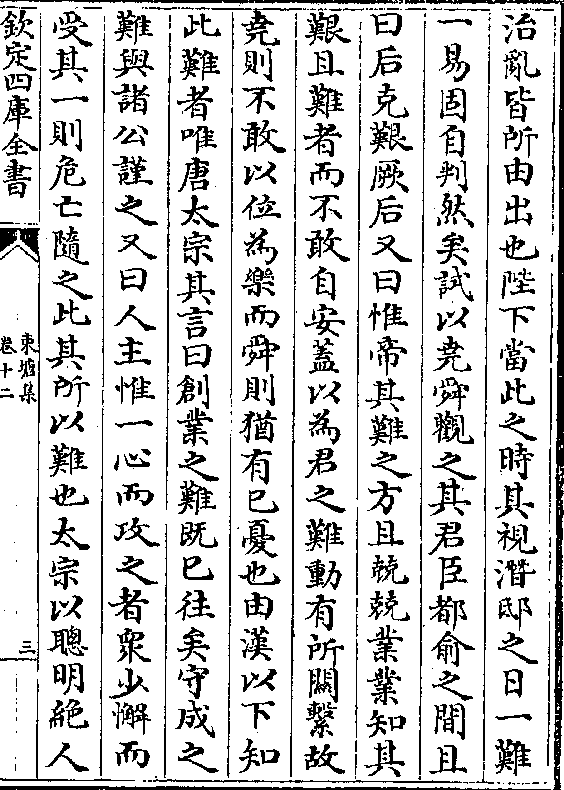 治亂皆所由出也陛下當此之時其視潛邸之日一難
一易固自判然矣試以堯舜觀之其君臣都俞之間且
曰后克艱厥后又曰惟帝其難之方且兢兢業業知其
艱且難者而不敢自安蓋以為君之難動有所關繫故
堯則不敢以位為樂而舜則猶有已憂也由漢以下知
此難者唯唐太宗其言曰創業之難既已往矣守成之
難與諸公謹之又曰人主惟一心而攻之者衆少懈而
受其一則危亡隨之此其所以難也太宗以聰明絶人
欽定四庫全書
東塘集
卷十二
三